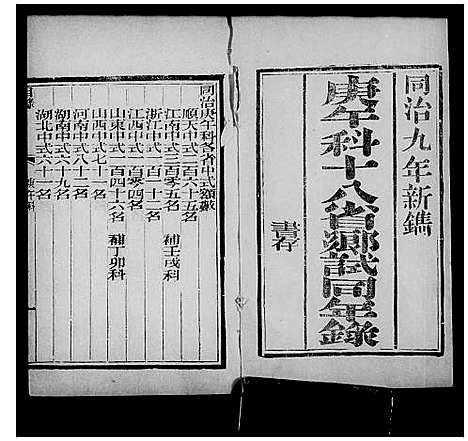 同治九年新鐫
庚午科十八省鄉試同年錄
書存
同治庚午科各省中式額數
順天中式二百六十五名
江南中式三百零五名 補壬戌科
浙江中式一百一十二名
江西中式一百零四名
山東中式一百四十六名 補丁卯科
山西中式七十一名
河南中式八十八名
湖南中式六十九名
湖北中式六十一名